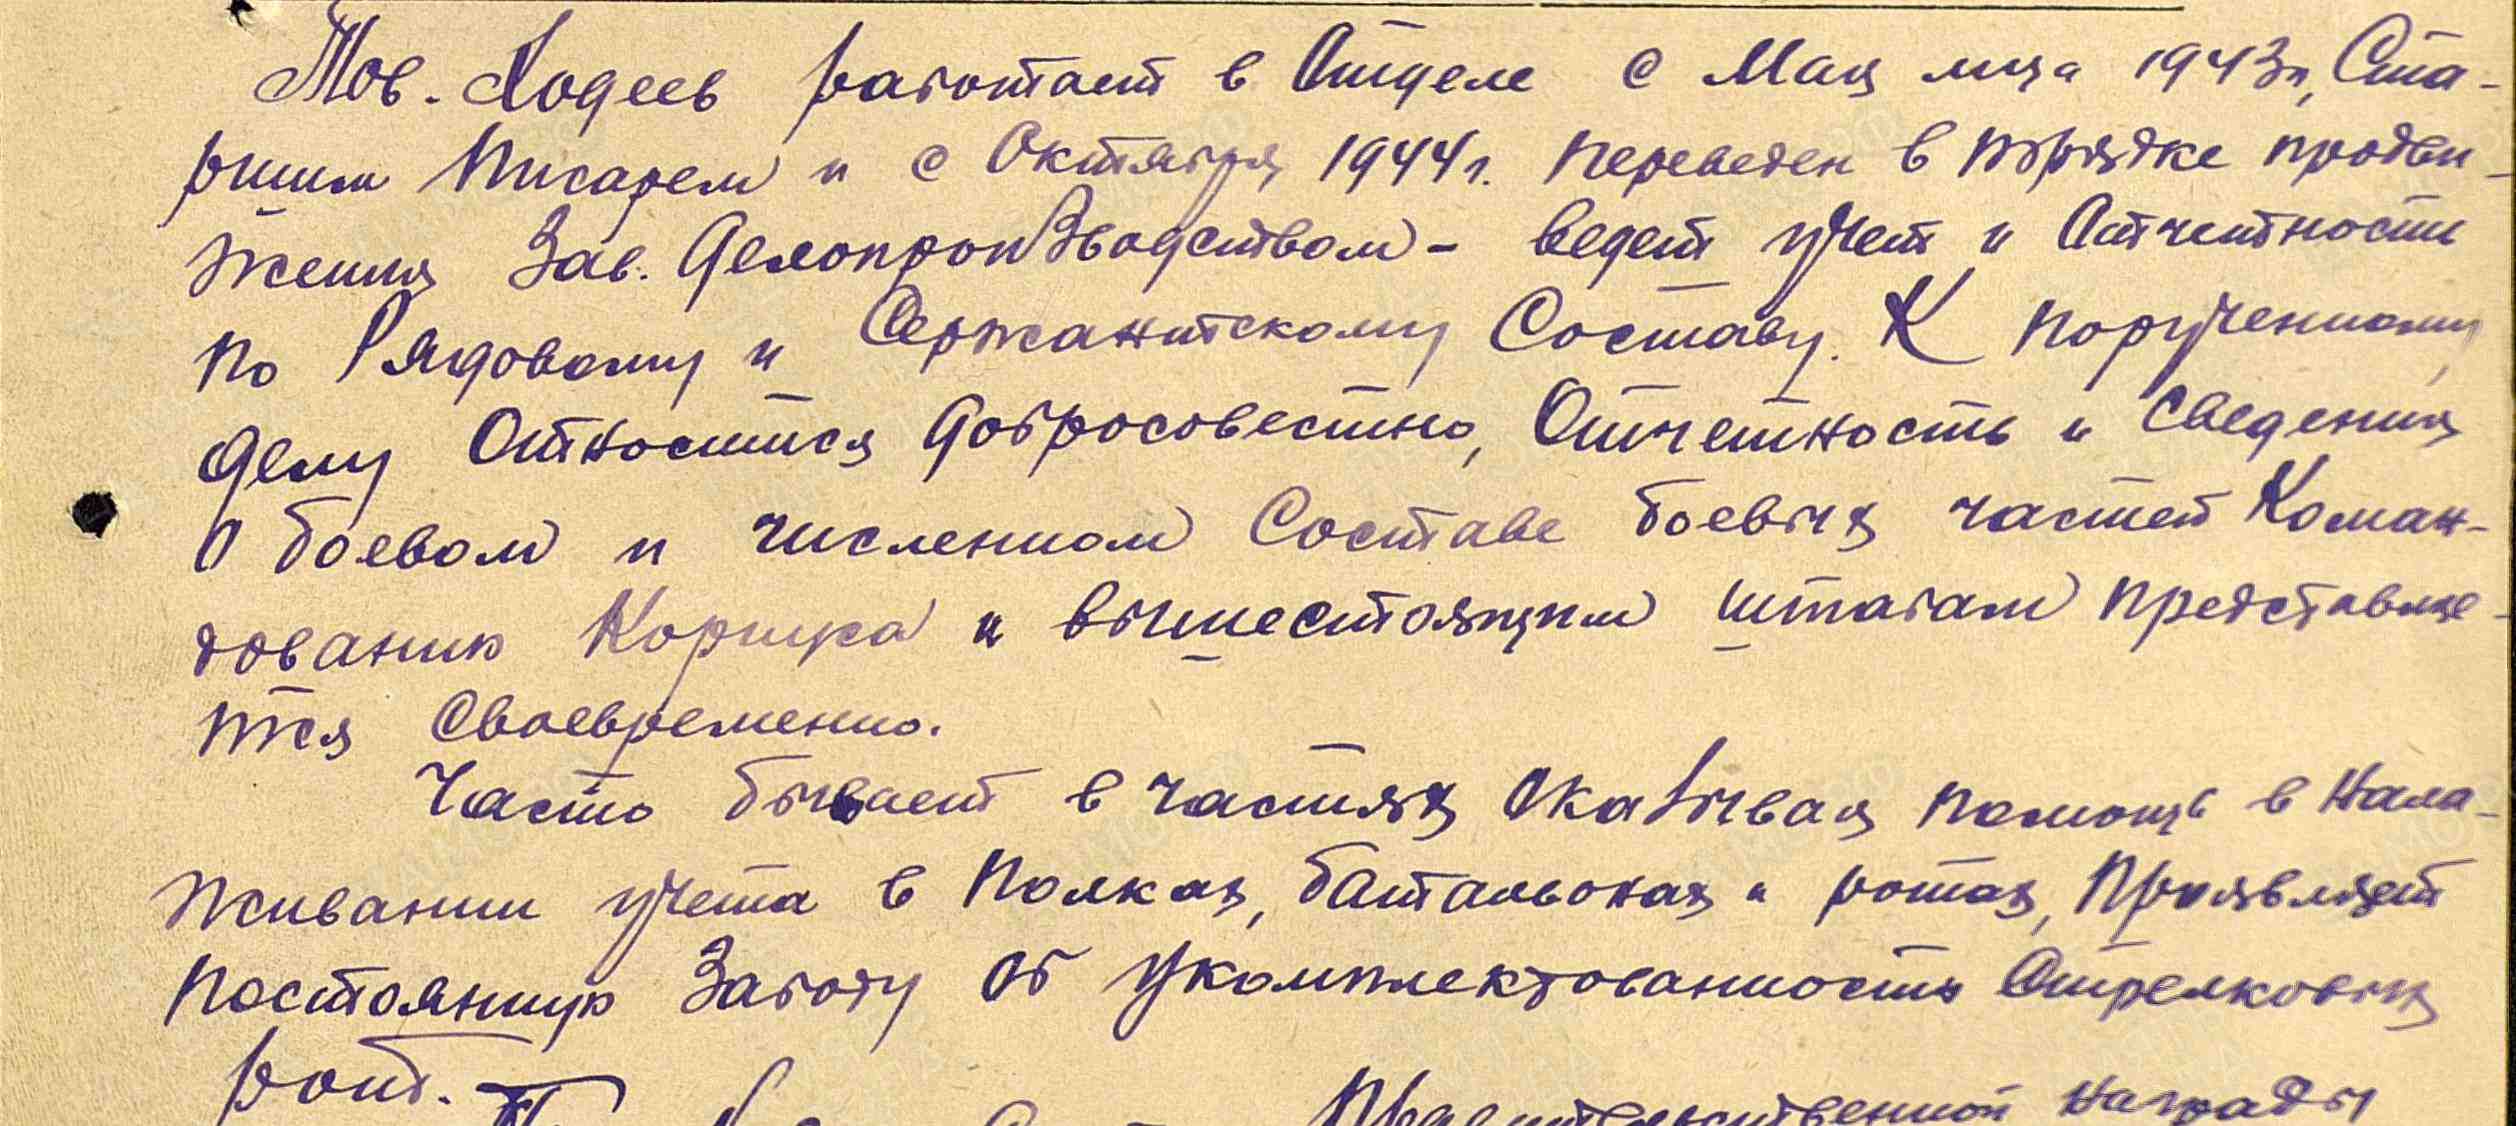 Тов. Ходеев работает в Отделе с Мая м-ца 1943г, Ста-
ршим Писарем и с Октября 1944г. Переведен в порядке продви-
жения Зав. Делопроизводством - ведет учет и Отчетность
по Рядовому и Сержантскому Составу. К порученному
делу Относится добросовестно, Отчетность и сведения
О боевом и численном Составе боевых частей Коман-
дованию Корпуса и вышестоящим штабам представляе-
тся Своевременно.
Часто бывает в частях Оказывая помощь в Нала-
живании учета в Полках, батальонах и ротах, Проявляет
постоянную Заботу Об Укомплектованность Стрелковых
рот.
Правительственной награды